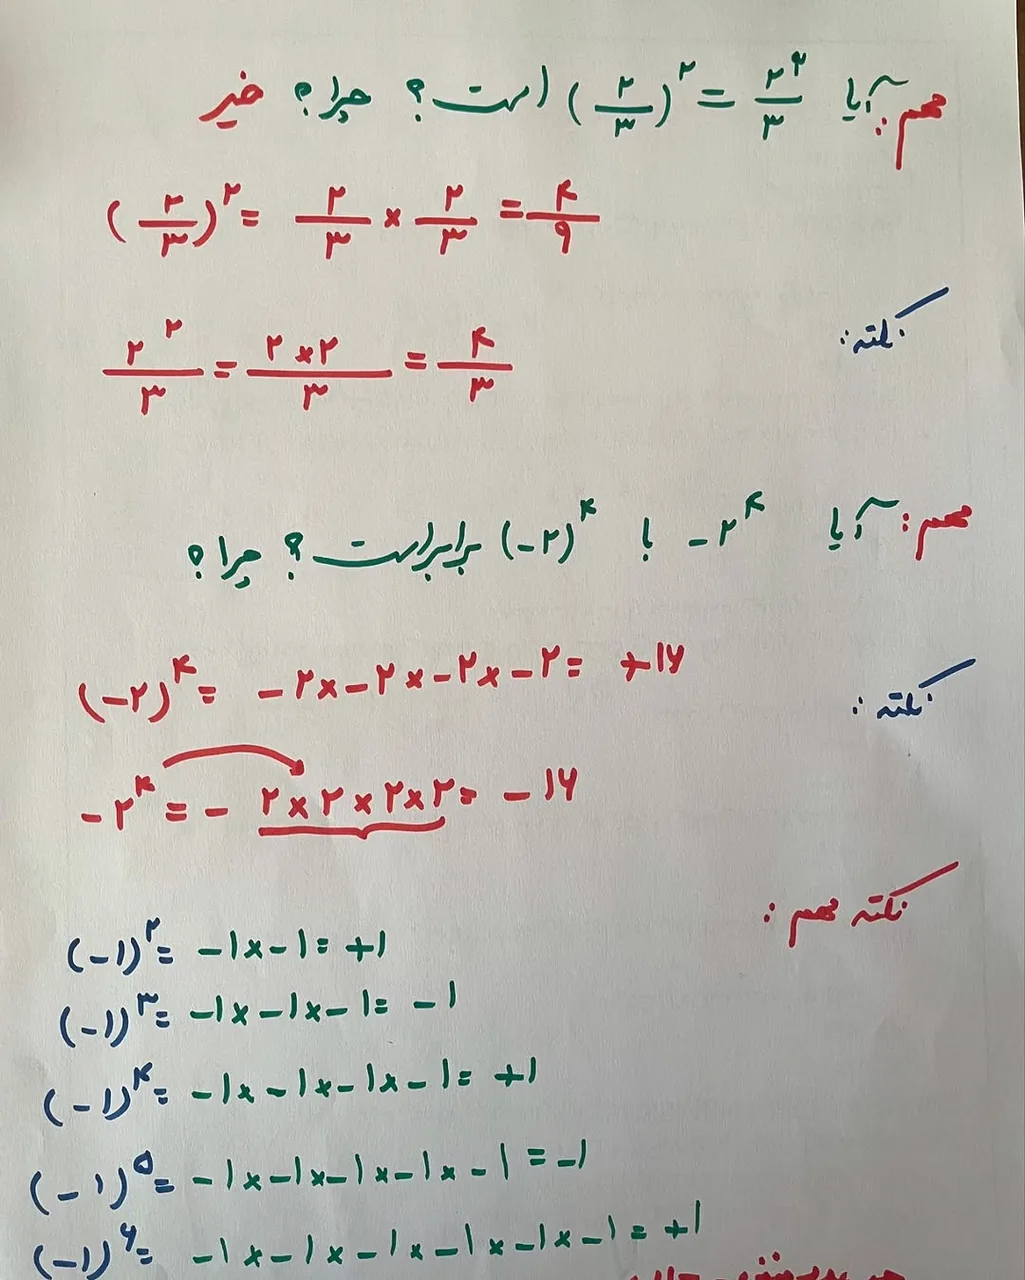 مهم: آیا ۲^۲/۳ = (۲/۳)^۲ است؟ چرا؟ خیر
(۲/۳)^۲ = ۲/۳ × ۲/۳ = ۴/۹
نکته:
۲^۲/۳ = ۲×۲/۳ = ۴/۳
مهم: آیا -۲^۴ با (-۲)^۴ برابر است؟ چرا؟
(-۲)^۴ = -۲×-۲×-۲×-۲= +۱۶
نکته:
-۲^۴ = - ۲×۲×۲×۲= -۱۶
نکته مهم:
(-۱)^۲= -۱×-۱= +۱
(-۱)^۳= -۱×-۱×-۱= -۱
(-۱)^۴= -۱×-۱×-۱×-۱= +۱
(-۱)^۵= -۱×-۱×-۱×-۱×-۱=-۱
(-۱)^۶= -۱×-۱×-۱×-۱×-۱×-۱= +۱